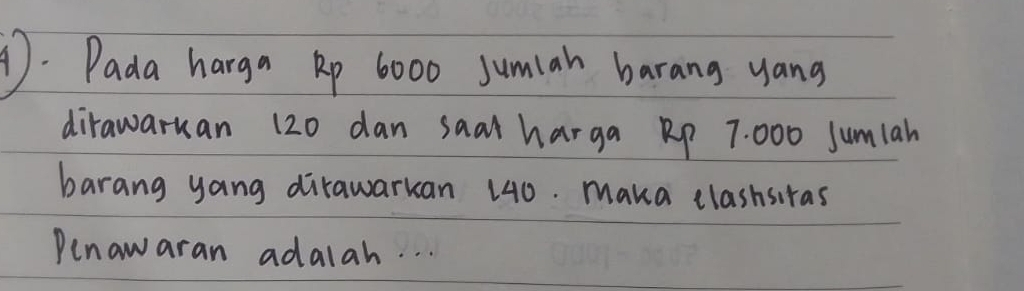 4). Pada harga Rp 6000 Jumlah barang yang
ditawarkan 120 dan saat harga Rp 7.000 Jumlah
barang yang ditawarkan 140. Maka elastisitas
Penawaran adalah...